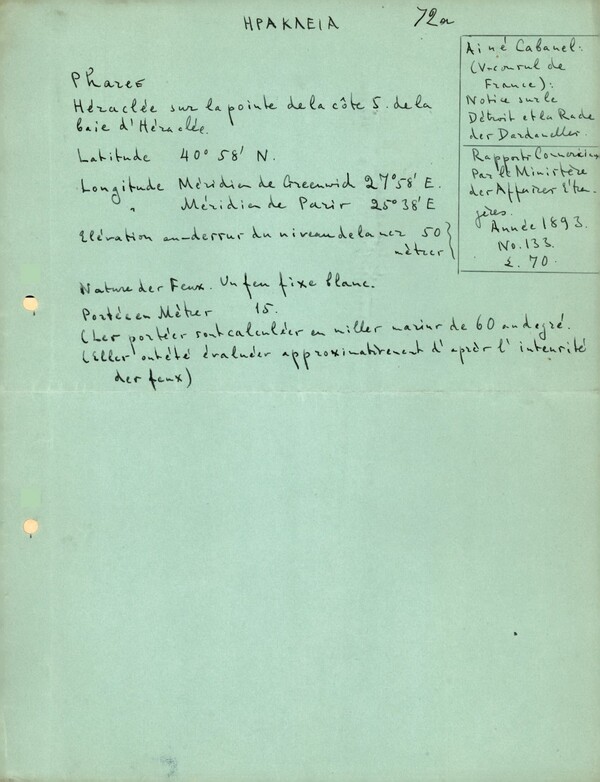 ΗΡΑΚΛΕΙΑ
72a
Phares
Héraclée sur la pointe de la côte S. de la
baie d'Héraclée.
Latitude 40° 58' N.
Longitude Méridien de Greenwich 27° 58' E.
" Méridien de Paris 25° 38' E
Elévation au-dessus du niveau de la mer 50
mètres
Nature des Feux. Un feu fixe blanc.
Portée en Mètres 15.
(Les portées sont calculées en milles marins de 60 au degré.
(Elles ont été évaluées approximativement d'après l'intensité
des feux)
Aimé Cabanel:
(V-consul de
France):
Notice sur le
Détroit et la Rade
des Dardanelles.
Rapports Commerciaux
Par le Ministère
des Affaires Etran-
gères.
Année 1893.
No. 133.
Σ. 70.